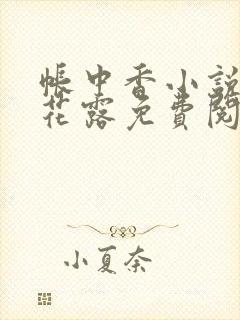 帳中香小說
花露免費閱
小夏奈